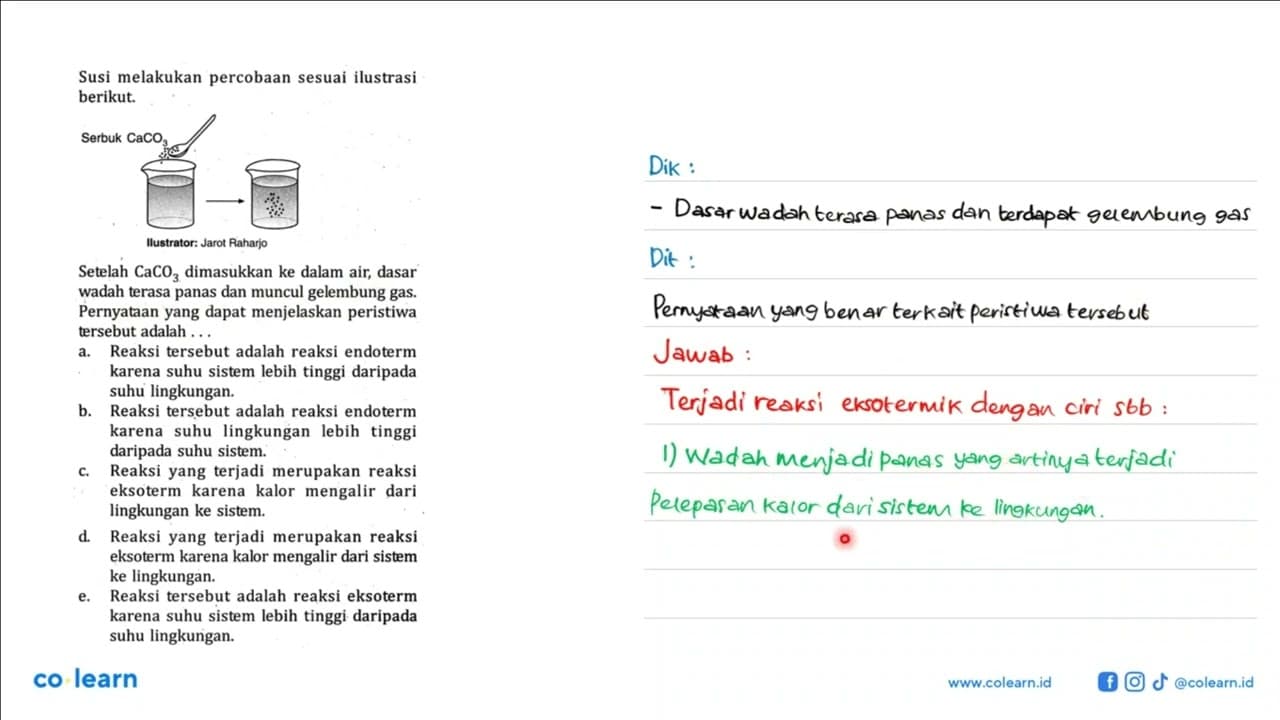 Susi melakukan percobaan sesuai ilustrasi
berikut.
Serbuk CaCO₃
Ilustrator: Jarot Raharjo
Setelah CaCO₃ dimasukkan ke dalam air, dasar
wadah terasa panas dan muncul gelembung gas.
Pernyataan yang dapat menjelaskan peristiwa
tersebut adalah . . .
a. Reaksi tersebut adalah reaksi endoterm
karena suhu sistem lebih tinggi daripada
suhu lingkungan.
b. Reaksi tersebut adalah reaksi endoterm
karena suhu lingkungan lebih tinggi
daripada suhu sistem.
c. Reaksi yang terjadi merupakan reaksi
eksoterm karena kalor mengalir dari
lingkungan ke sistem.
d. Reaksi yang terjadi merupakan reaksi
eksoterm karena kalor mengalir dari sistem
ke lingkungan.
e. Reaksi tersebut adalah reaksi eksoterm
karena suhu sistem lebih tinggi daripada
suhu lingkungan.
Dik :
- Dasar wadah terasa panas dan terdapat gelembung gas
Dit :
Pernyataan yang benar terkait peristiwa tersebut
Jawab :
Terjadi reaksi eksotermik dengan ciri sbb :
1) Wadah menjadi panas yang artinya terjadi
Pelepasan kalor dari sistem ke lingkungan.
co learn
www.colearn.id
@colearn.id